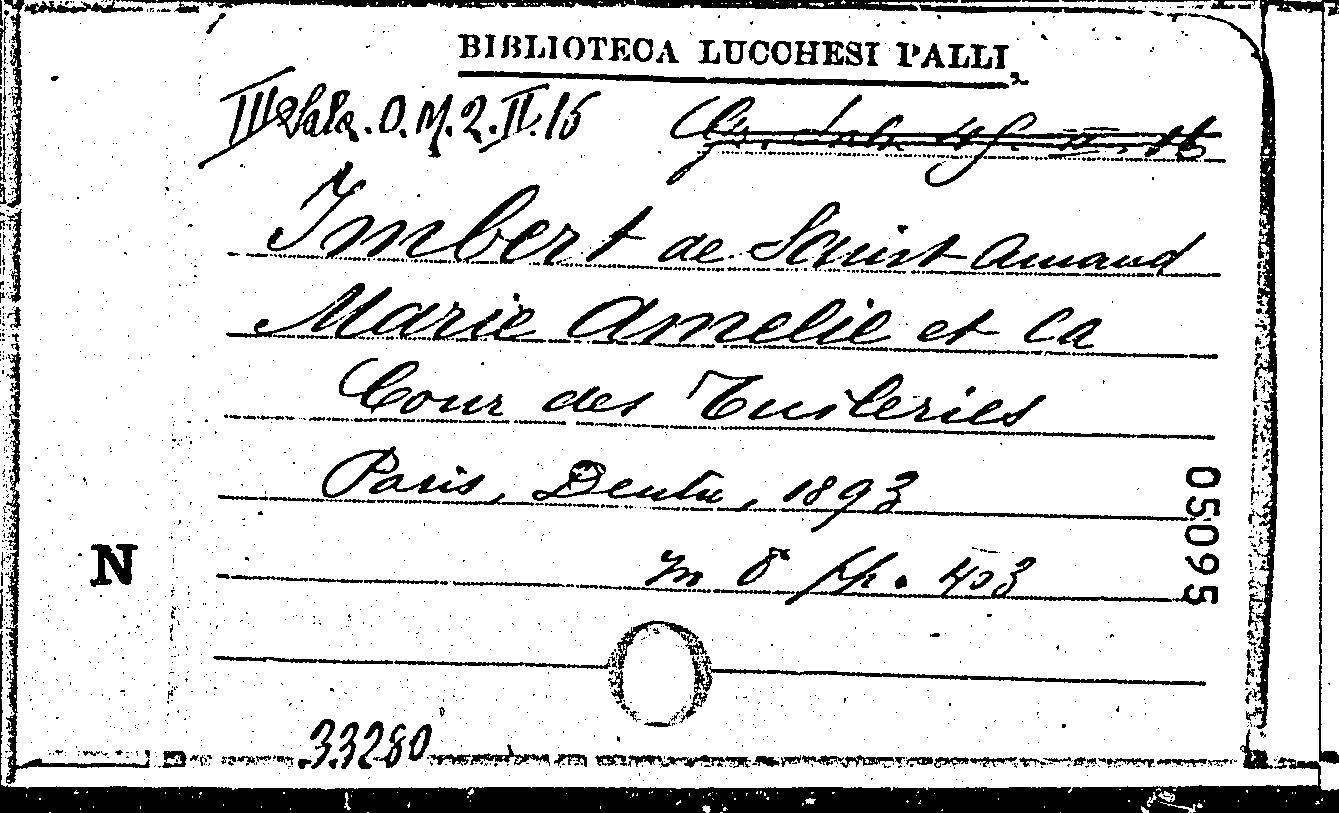 BIBLIOTECA LUCCHESI PALLI
III Sala. O. M. 2. II. 15
Imbert de Saint Amand
Marie Amelie et la
Cour des Tuileries
Paris, Dentu, 1893
in 8° pp. 403
N
05095
33280